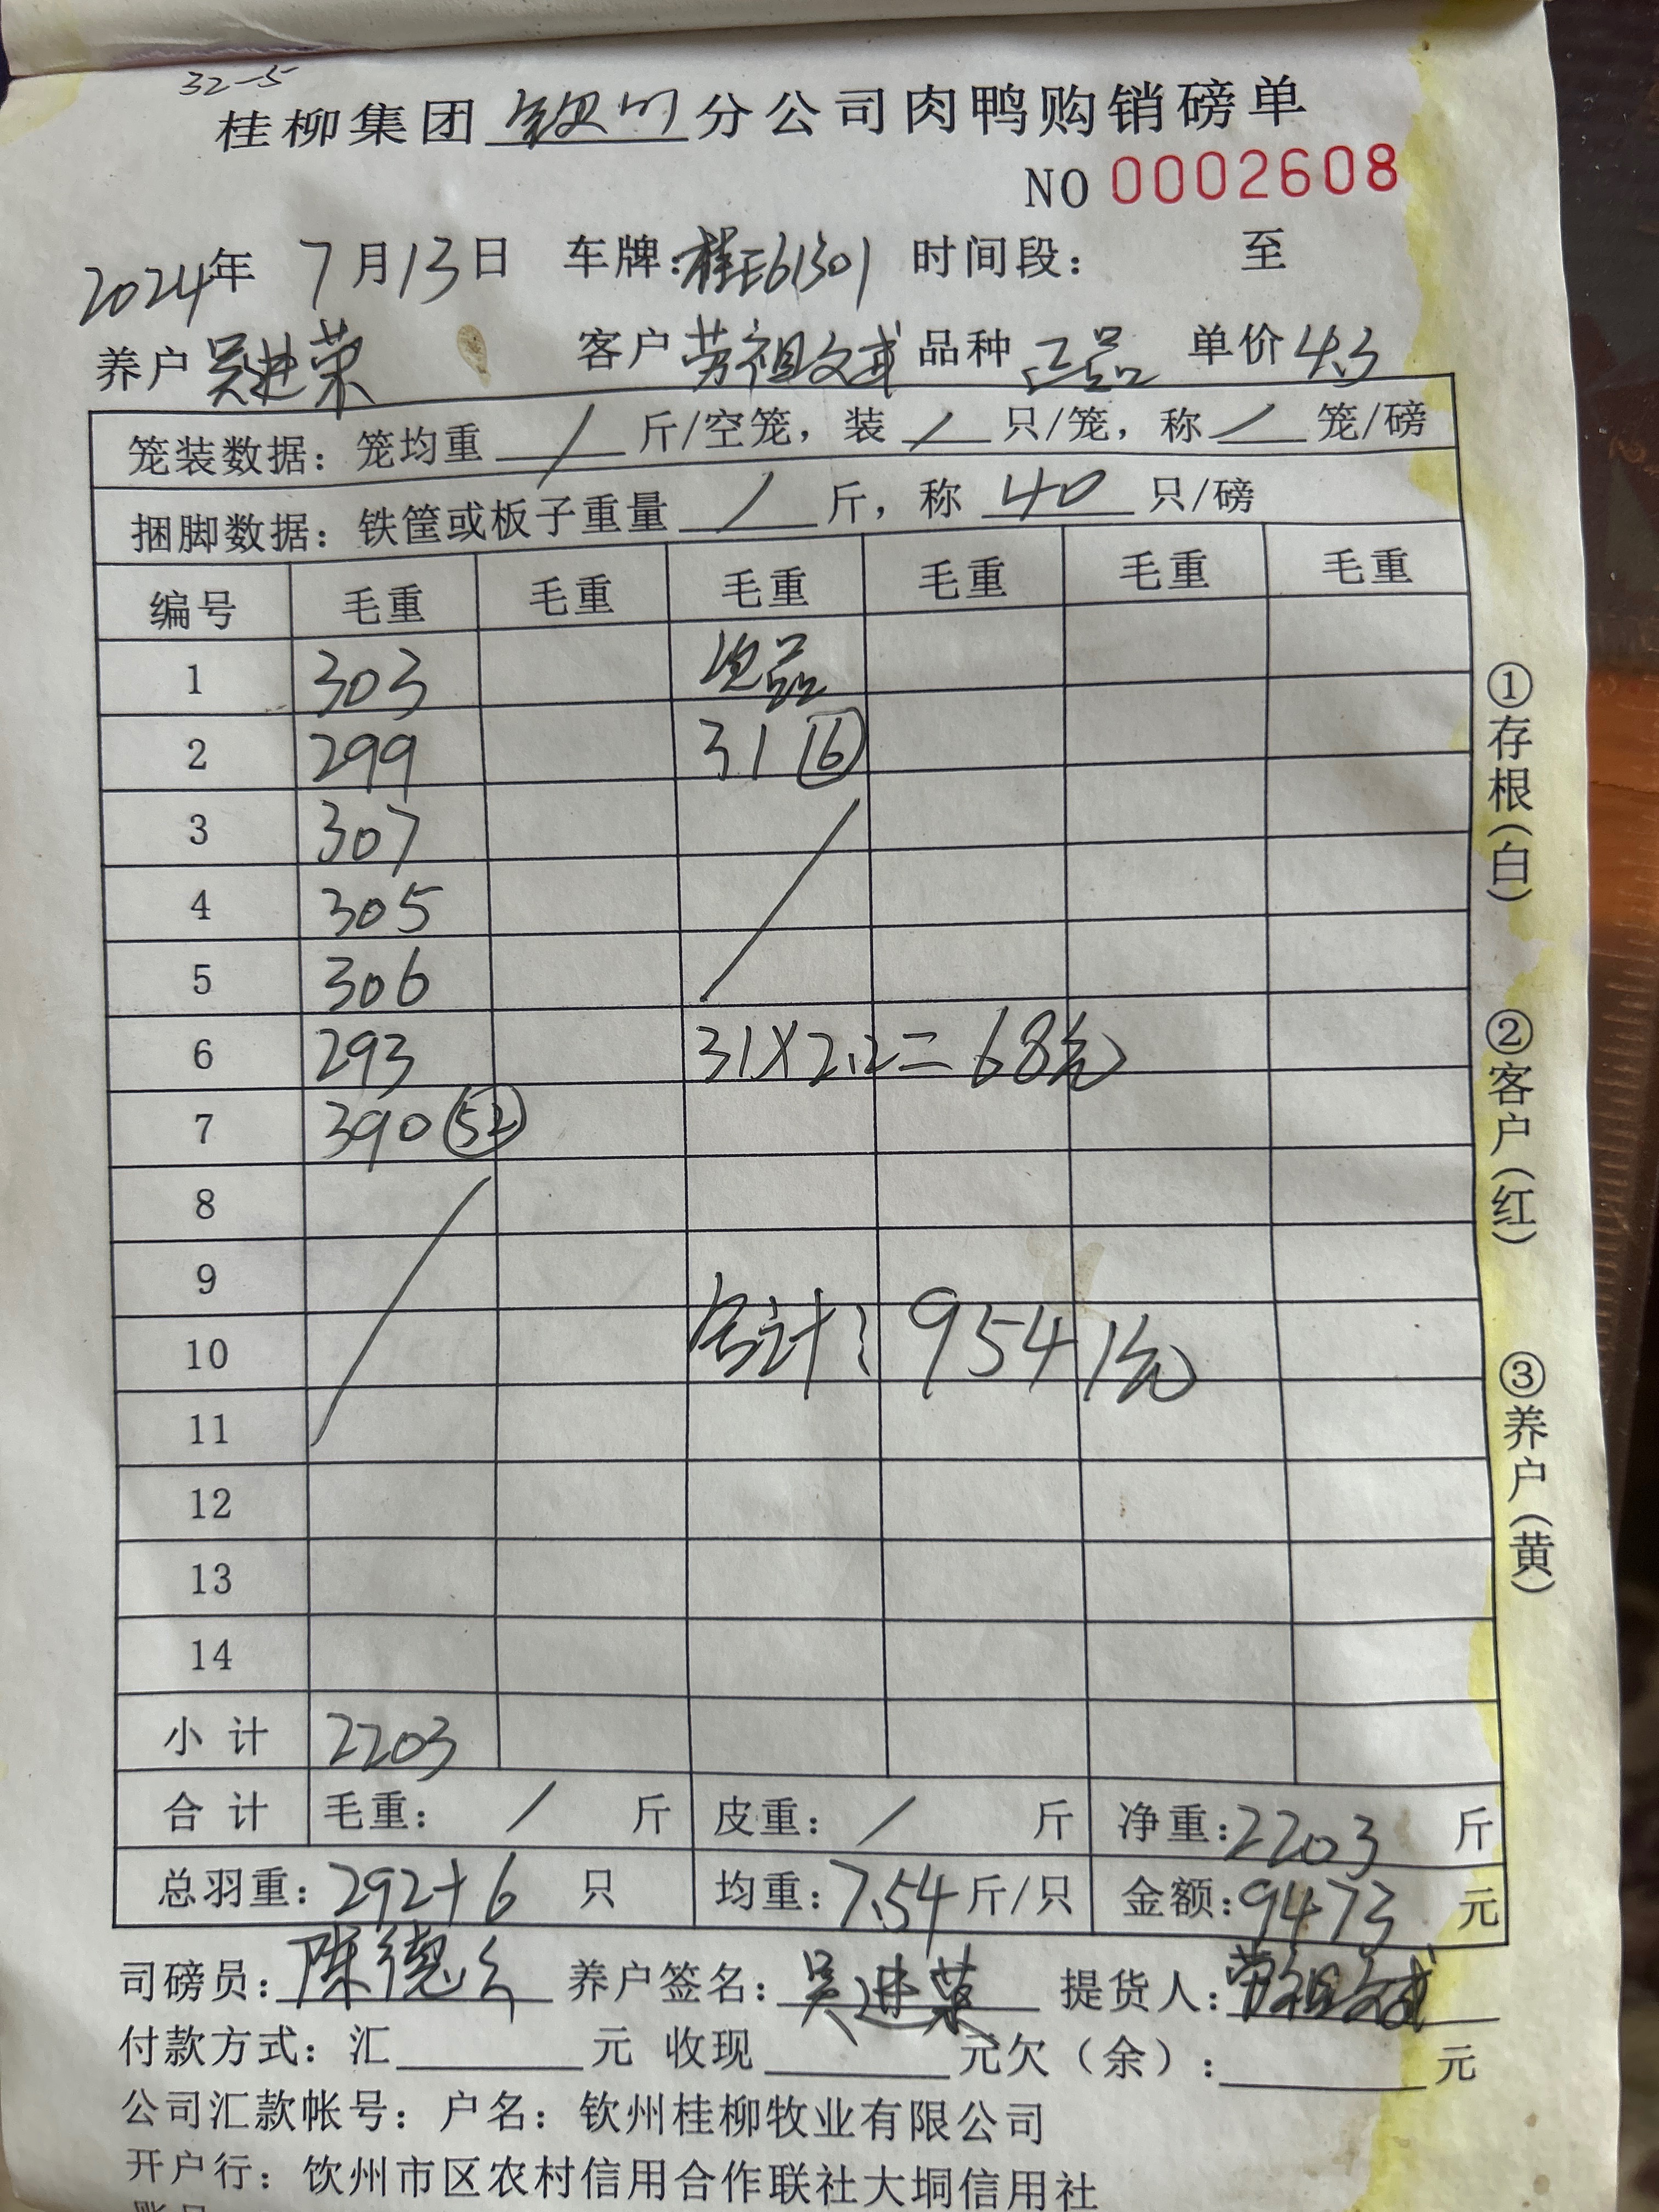 32-5
桂柳集团 钦州 分公司肉鸭购销磅单
NO 0002608
2024年 7月13日 车牌:桂E61301 时间段: 至
养户 吴进荣 客户 劳祖文武 品种 正品 单价 4.3
笼装数据:笼均重 / 斤/空笼,装 / 只/笼,称 / 笼/磅
捆脚数据:铁筐或板子重量 / 斤,称 40 只/磅
编号 毛重 毛重 毛重 毛重 毛重 毛重
1 303 次品
2 299 31 ⑥
3 307
4 305
5 306
6 293 31×2.2=68元
7 390 (52)
8
9
10 合计:9541元
11
12
13
14
小计 2203
合计 毛重: / 斤 皮重: / 斤 净重:2203 斤
总羽重:292+6 只 均重:7.54斤/只 金额:9473 元
司磅员:陈德 养户签名:吴进荣 提货人:劳祖文武
付款方式:汇 元 收现 元欠(余): 元
公司汇款帐号:户名:钦州桂柳牧业有限公司
开户行:饮州市区农村信用合作联社大垌信用社
①存根(白) ②客户(红) ③养户(黄)